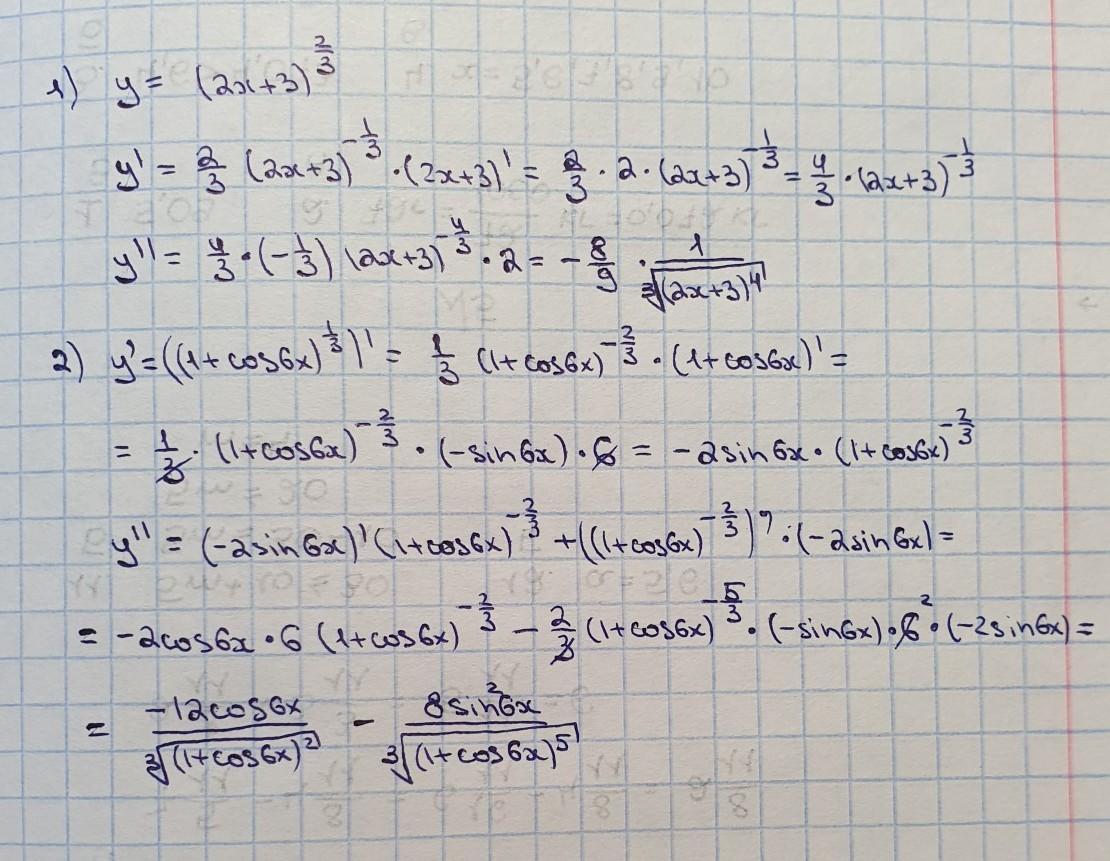 1) y = (2x+3)^(2/3)
y' = 2/3 (2x+3)^(-1/3) · (2x+3)' = 2/3 · 2 · (2x+3)^(-1/3) = 4/3 · (2x+3)^(-1/3)
y'' = 4/3 · (-1/3) (2x+3)^(-4/3) · 2 = -8/9 · 1/∛((2x+3)^4)
2) y' = ((1+cos6x)^(1/3))' = 1/3 (1+cos6x)^(-2/3) · (1+cos6x)' =
= 1/3 · (1+cos6x)^(-2/3) · (-sin6x) · 6 = -2sin6x · (1+cos6x)^(-2/3)
y'' = (-2sin6x)' (1+cos6x)^(-2/3) + ((1+cos6x)^(-2/3))' · (-2sin6x) =
= -2cos6x · 6 (1+cos6x)^(-2/3) - 2/3 (1+cos6x)^(-5/3) · (-sin6x) · 6² · (-2sin6x) =
= -12cos6x/∛((1+cos6x)²) - 8sin²6x/∛((1+cos6x)^5)